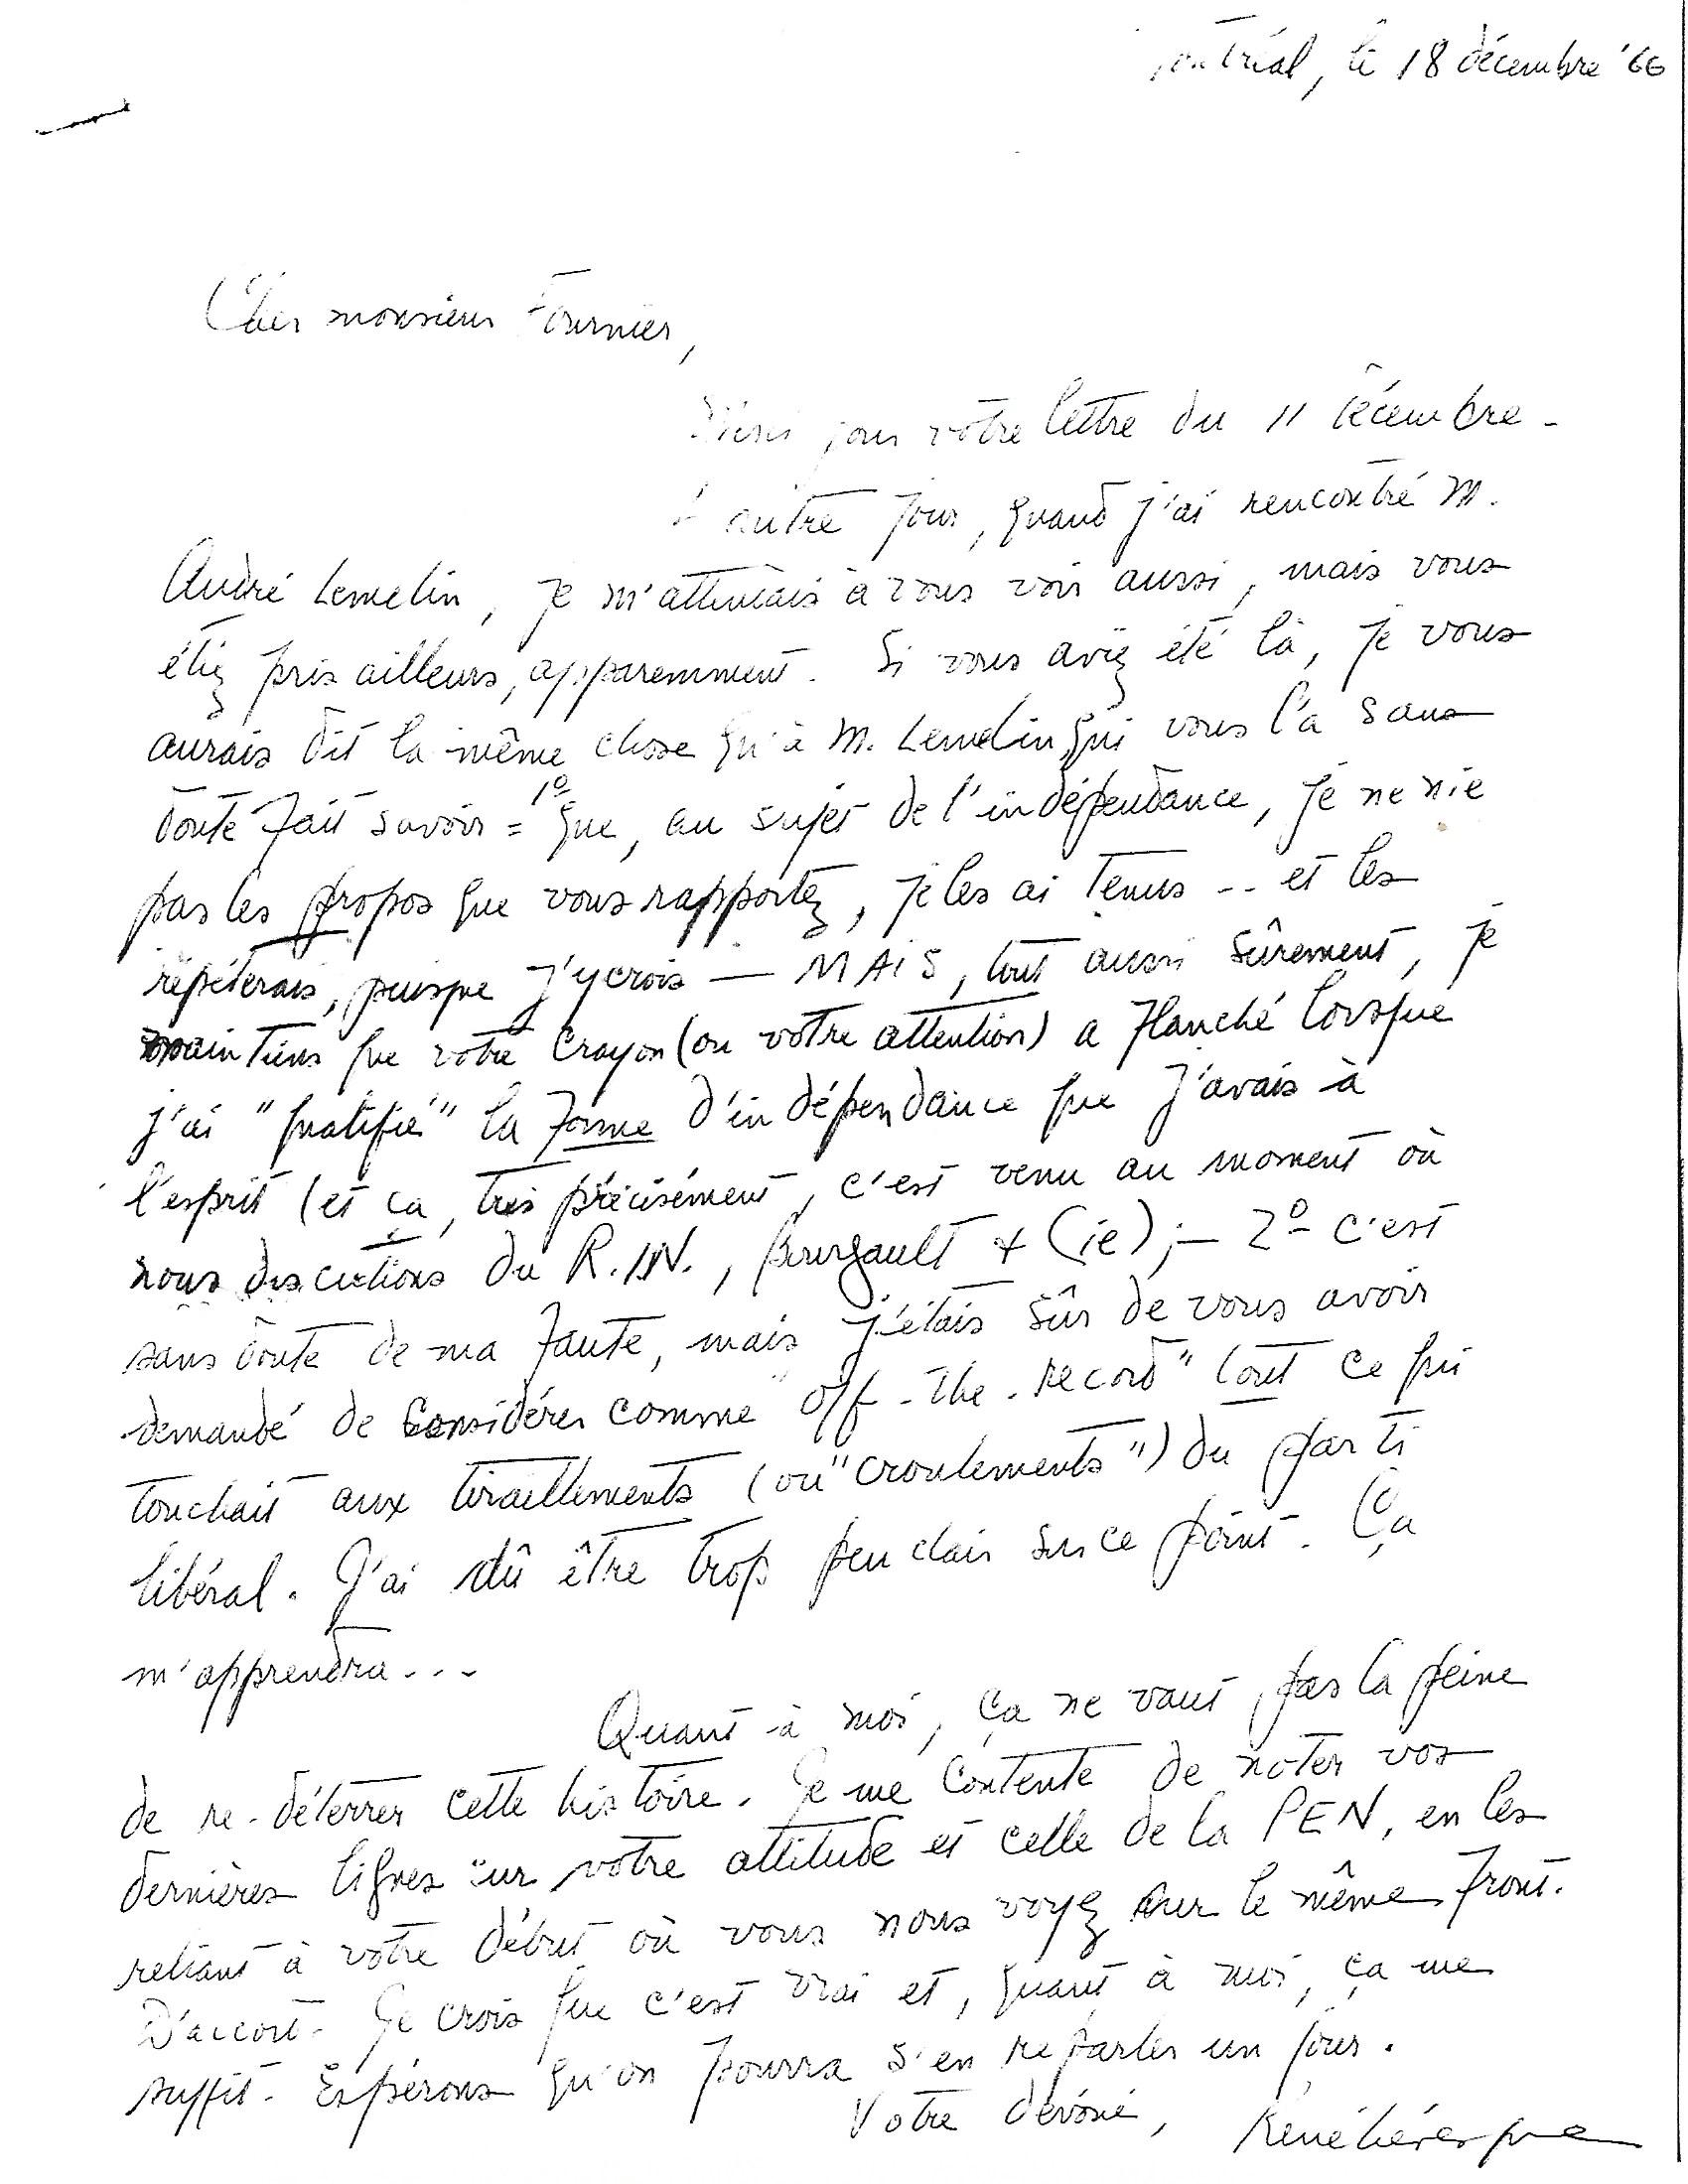 Montréal, le 18 décembre '66
Cher monsieur Fournier,
votre lettre du 11 décembre -
L'autre jour, quand j'ai rencontré M.
André Lemelin, je m'attendais à vous voir aussi, mais vous
étiez pris ailleurs, apparemment. Si vous aviez été là, je vous
aurais dit la même chose qu'à M. Lemelin, qui vous l'a sans
doute fait savoir = 1º que, au sujet de l'indépendance, je ne nie
pas les propos que vous rapportez, je les ai tenus -- et les
répéterais, puisque j'y crois — MAIS, tout aussi sûrement, je
maintiens que votre crayon (ou votre attention) a flanché lorsque
j'ai "qualifié" la forme d'indépendance que j'avais à
l'esprit (et ça, très précisément, c'est venu au moment où
nous discutions du R.I.N., Bourgault & Cie); — 2º c'est
sans doute de ma faute, mais j'étais sûr de vous avoir
demandé de considérer comme "off-the-record" tout ce qui
touchait aux tiraillements (ou "croulements") du parti
libéral. J'ai dû être trop peu clair sur ce point. Ça
m'apprendra...
Quant à moi, ça ne vaut pas la peine
de re-déterrer cette histoire. Je me contente de noter vos
dernières lignes sur votre attitude et celle de la PEN, en les
reliant à votre début où vous nous voyez sur le même front.
D'accord. Je crois que c'est vrai et, quant à moi, ça me
suffit. Espérons qu'on pourra s'en reparler un jour.
Votre dévoué, René Lévesque